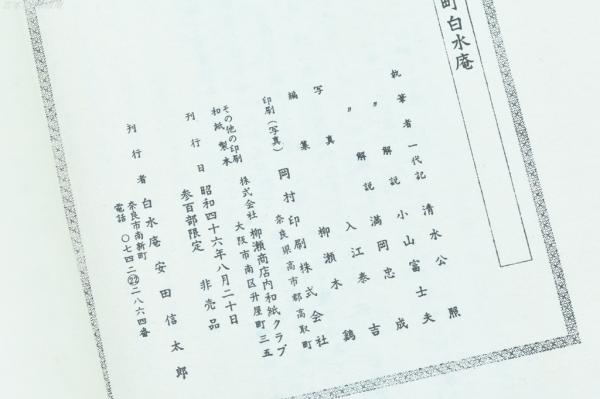 町白水庵
執筆者 一代記 清水公照
〃 解説 小山富士夫
〃 解説 満岡忠成
写真 入江泰吉
編集 柳瀬木
印刷(写真) 岡村印刷株式会社
奈良県高市郡高取町
その他の印刷
和紙製本
株式会社柳瀬商店内和紙クラブ
大阪市南区升屋町三五
刊行日 昭和四十六年八月二十日
参百部限定 非売品
刊行者 白水庵 安田信太郎
奈良市南新町
電話 〇七四二㉒二八六四番